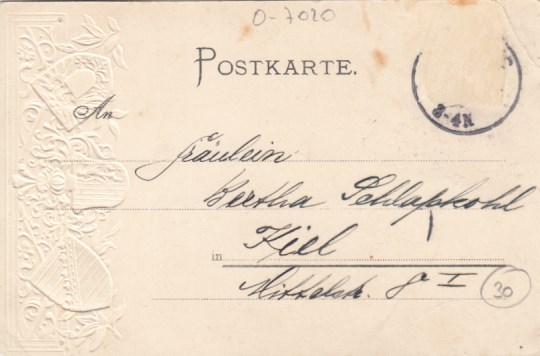 O-7020
POSTKARTE.
3-4N
An
Fräulein
Bertha Schlapkohl
in Kiel
Mittelstr. 8 I
30